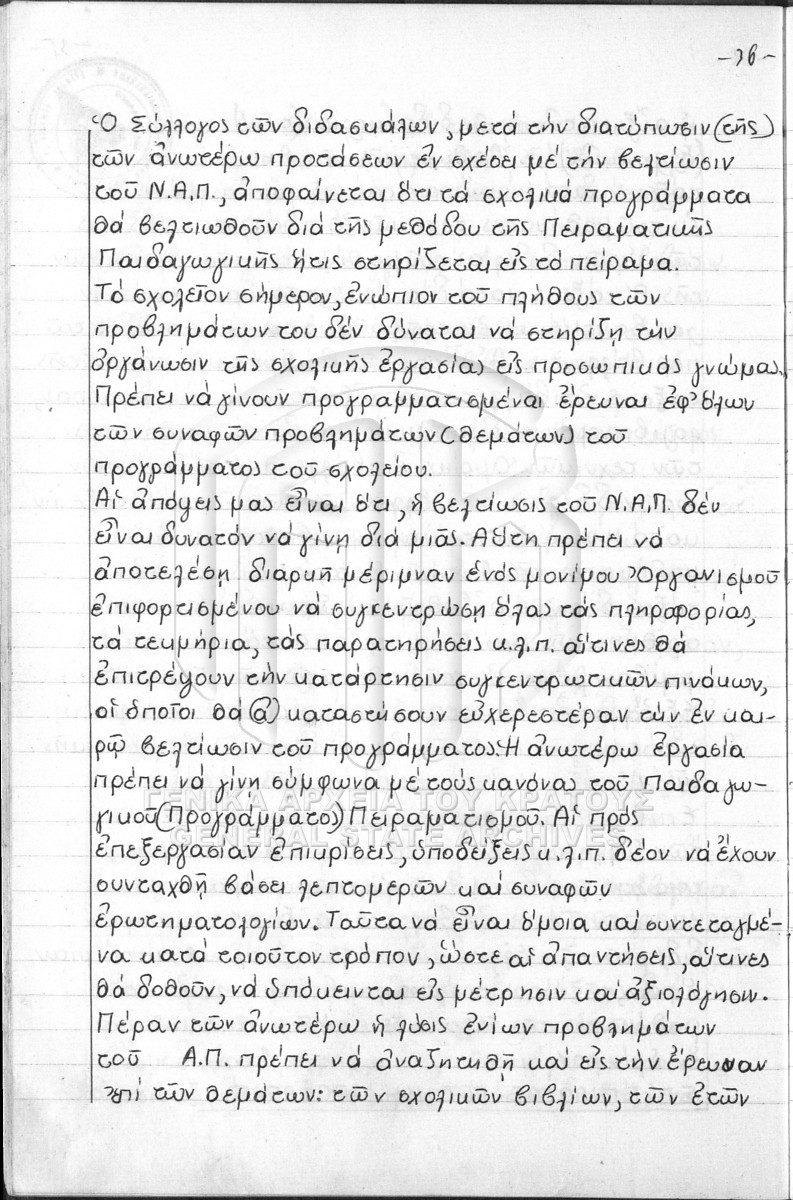 -36-
Ὁ Σύλλογος τῶν διδασκάλων, μετά τήν διατύπωσιν (τῆς)
τῶν ἀνωτέρω προτάσεων ἐν σχέσει μέ τήν βελτίωσιν
τοῦ Ν.Α.Π., ἀποφαίνεται ὅτι τά σχολικά προγράμματα
θά βελτιωθοῦν διά τῆς μεθόδου τῆς Πειραματικῆς
Παιδαγωγικῆς ἥτις στηρίζεται εἰς τό πείραμα.
Τό σχολεῖον σήμερον, ἐνώπιον τοῦ πλήθους τῶν
προβλημάτων του δέν δύναται νά στηρίζῃ τήν
ὀργάνωσιν τῆς σχολικῆς ἐργασίας εἰς προσωπικάς γνώμας.
Πρέπει νά γίνουν προγραμματισμέναι ἔρευναι ἐφ' ὅλων
τῶν συναφῶν προβλημάτων (θεμάτων) τοῦ
προγράμματος τοῦ σχολείου.
Αἱ ἀπόψεις μας εἶναι ὅτι, ἡ βελτίωσις τοῦ Ν.Α.Π. δέν
εἶναι δυνατόν νά γίνῃ διά μιᾶς. Αὕτη πρέπει νά
ἀποτελέσῃ διαρκῆ μέριμναν ἑνός μονίμου Ὀργανισμοῦ
ἐπιφορτισμένου νά συγκεντρώσῃ ὅλας τάς πληροφορίας,
τά τεκμήρια, τάς παρατηρήσεις κ.λ.π. αἵτινες θά
ἐπιτρέψουν τήν κατάρτησιν συγκεντρωτικῶν πινάκων,
οἱ ὁποῖοι θά (α) καταστήσουν εὐχερεστέραν τήν ἐν και-
ρῷ βελτίωσιν τοῦ προγράμματος. Ἡ ἀνωτέρω ἐργασία
πρέπει νά γίνῃ σύμφωνα μέ τούς κανόνας τοῦ Παιδαγω-
γικοῦ (Προγράμματος) Πειραματισμοῦ. Αἱ πρός
ἐπεξεργασίαν ἐπικρίσεις, ὑποδείξεις κ.λ.π. δέον νά ἔχουν
συνταχθῆ βάσει λεπτομερῶν καί συναφῶν
ἐρωτηματολογίων. Ταῦτα νά εἶναι ὅμοια καί συντεταγμέ-
να κατά τοιοῦτον τρόπον, ὥστε αἱ ἀπαντήσεις, αἵτινες
θά δοθοῦν, νά ὑπόκεινται εἰς μέτρησιν καί ἀξιολόγησιν.
Πέραν τῶν ἀνωτέρω ἡ λύσις ἐνίων προβλημάτων
τοῦ Α.Π. πρέπει νά ἀναζητηθῆ καί εἰς τήν ἔρευναν
ἐπί τῶν θεμάτων: τῶν σχολικῶν βιβλίων, τῶν ἐτῶν
ΓΕΝΙΚΑ ΑΡΧΕΙΑ ΤΟΥ ΚΡΑΤΟΥΣ
GENERAL STATE ARCHIVES